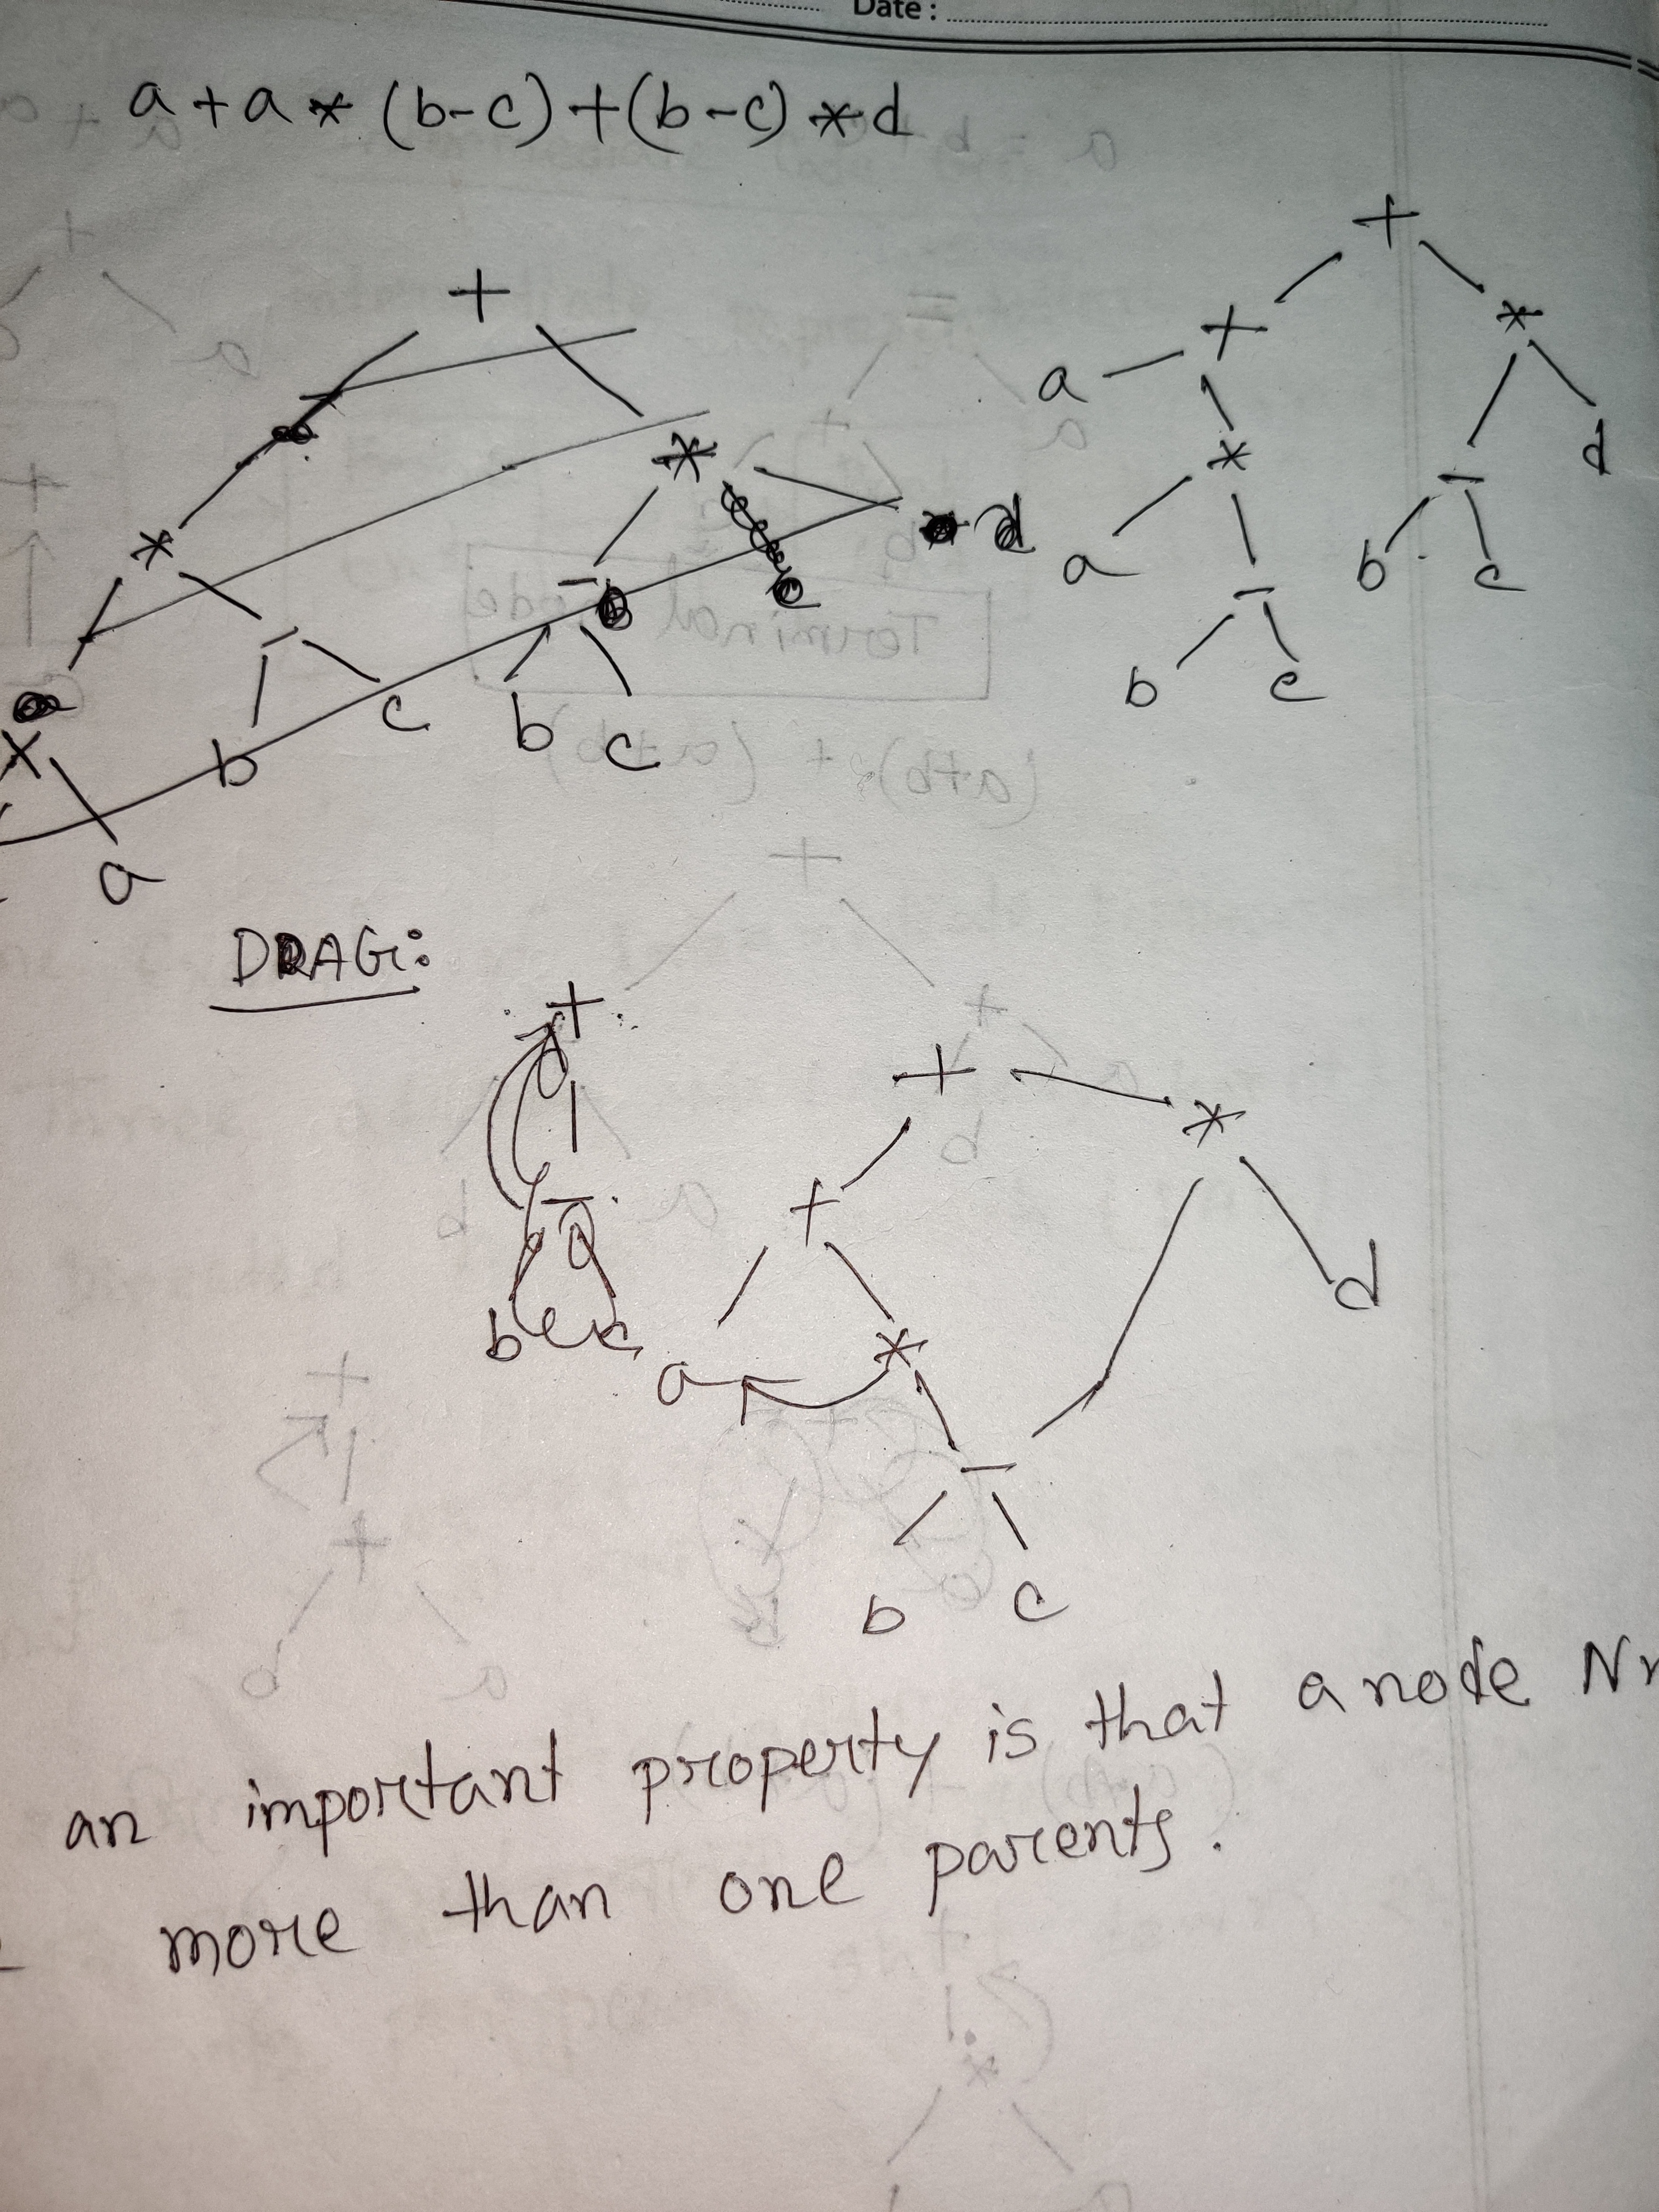 Date :
a + a * (b - c) + (b - c) * d
+
*
*
-
-
d
b
c
b
c
a
+
+
*
a
*
d
a
-
-
b
c
b
c
DAG:
+
-
b
c
+
*
+
d
a
*
-
b
c
an important property is that a node
more than one parents.